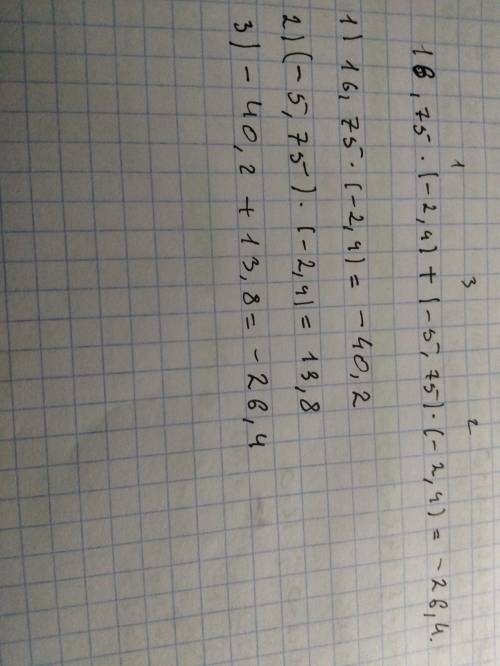 1 3 2
16,75 · (-2,4) + (-5,75) · (-2,4) = -26,4.
1) 16,75 · (-2,4) = -40,2
2) (-5,75) · (-2,4) = 13,8
3) -40,2 + 13,8 = -26,4